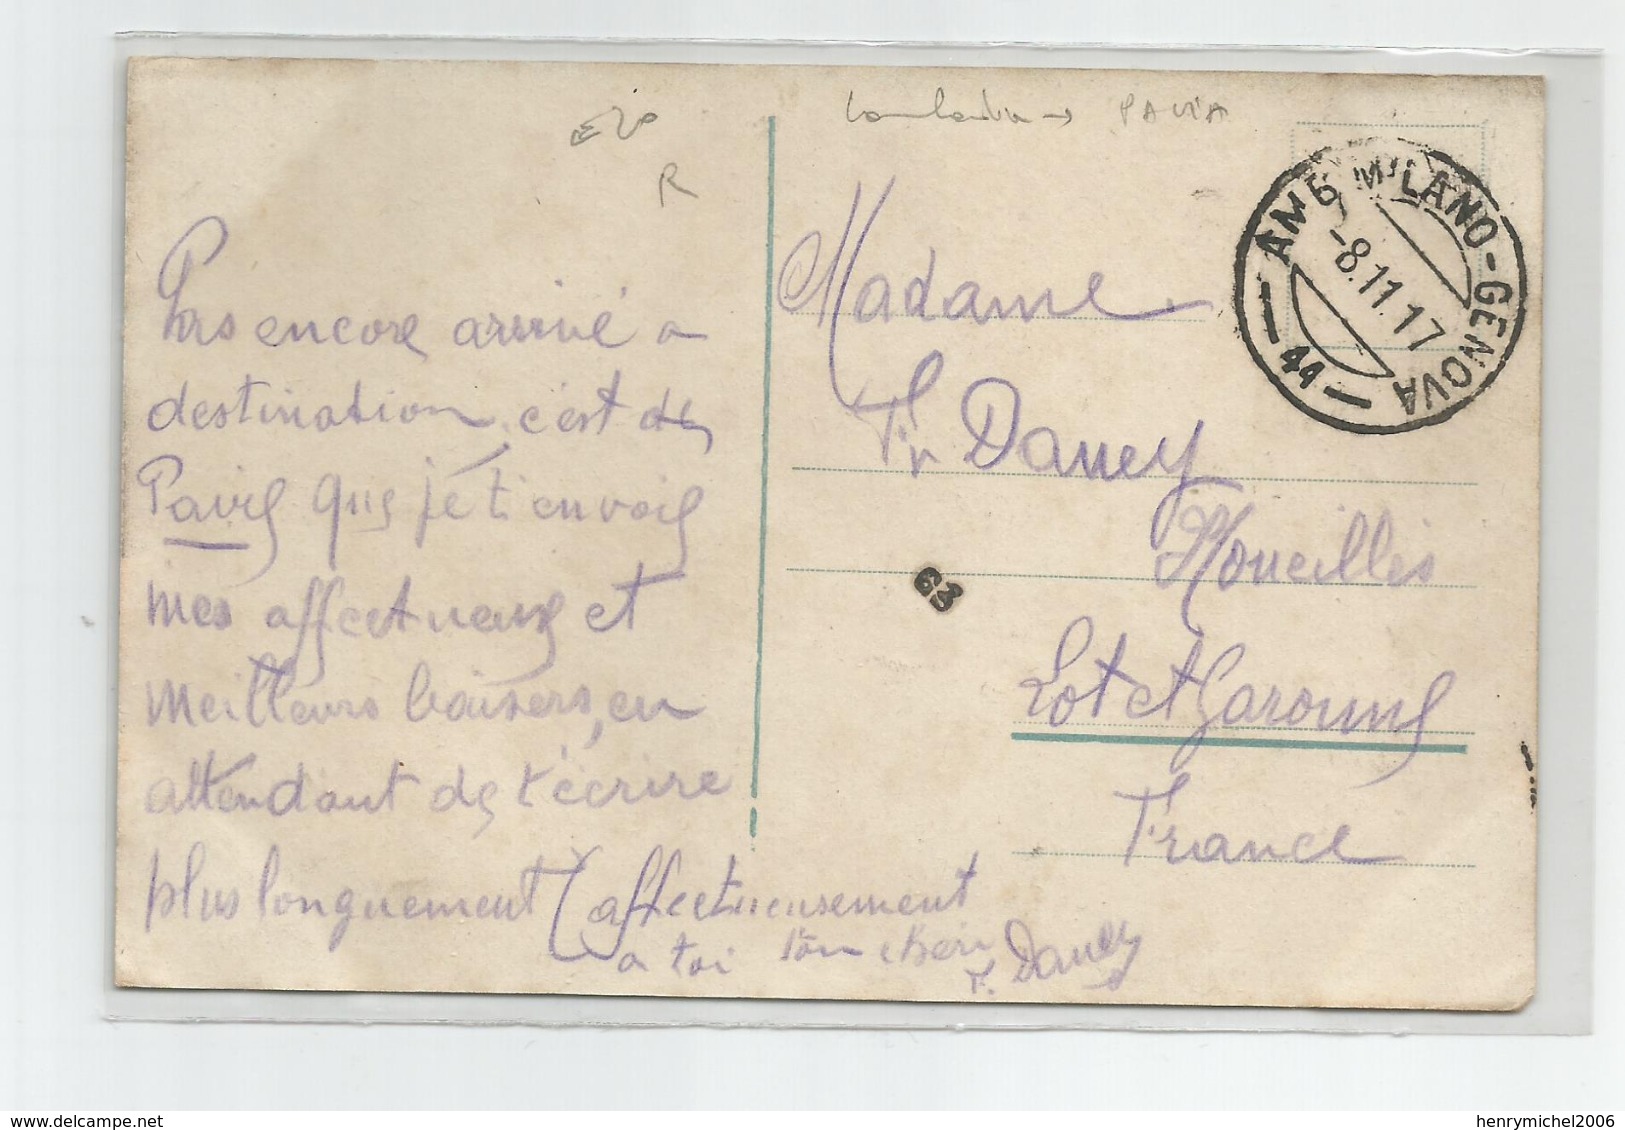 E20
R
Lombardia → PAVIA
AMB MILANO-GENOVA
-8.11.17
44
Pas encore arrivé a
destination, c'est de
Pavie que je t'envoie
mes affectueux et
meilleurs baisers, en
attendant de t'écrire
plus longuement
affectueusement
a toi ton cheri
F. Dauey
Madame
Fr Dauey
Houeillès
Lot et Garonne
France
63
delcampe.net
henrymichel2006